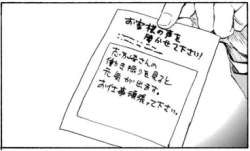 お客様の声を
聞かせて下さい!
さんの
働き振りを見ると
元気が出ます。
お仕事頑張って下さい。